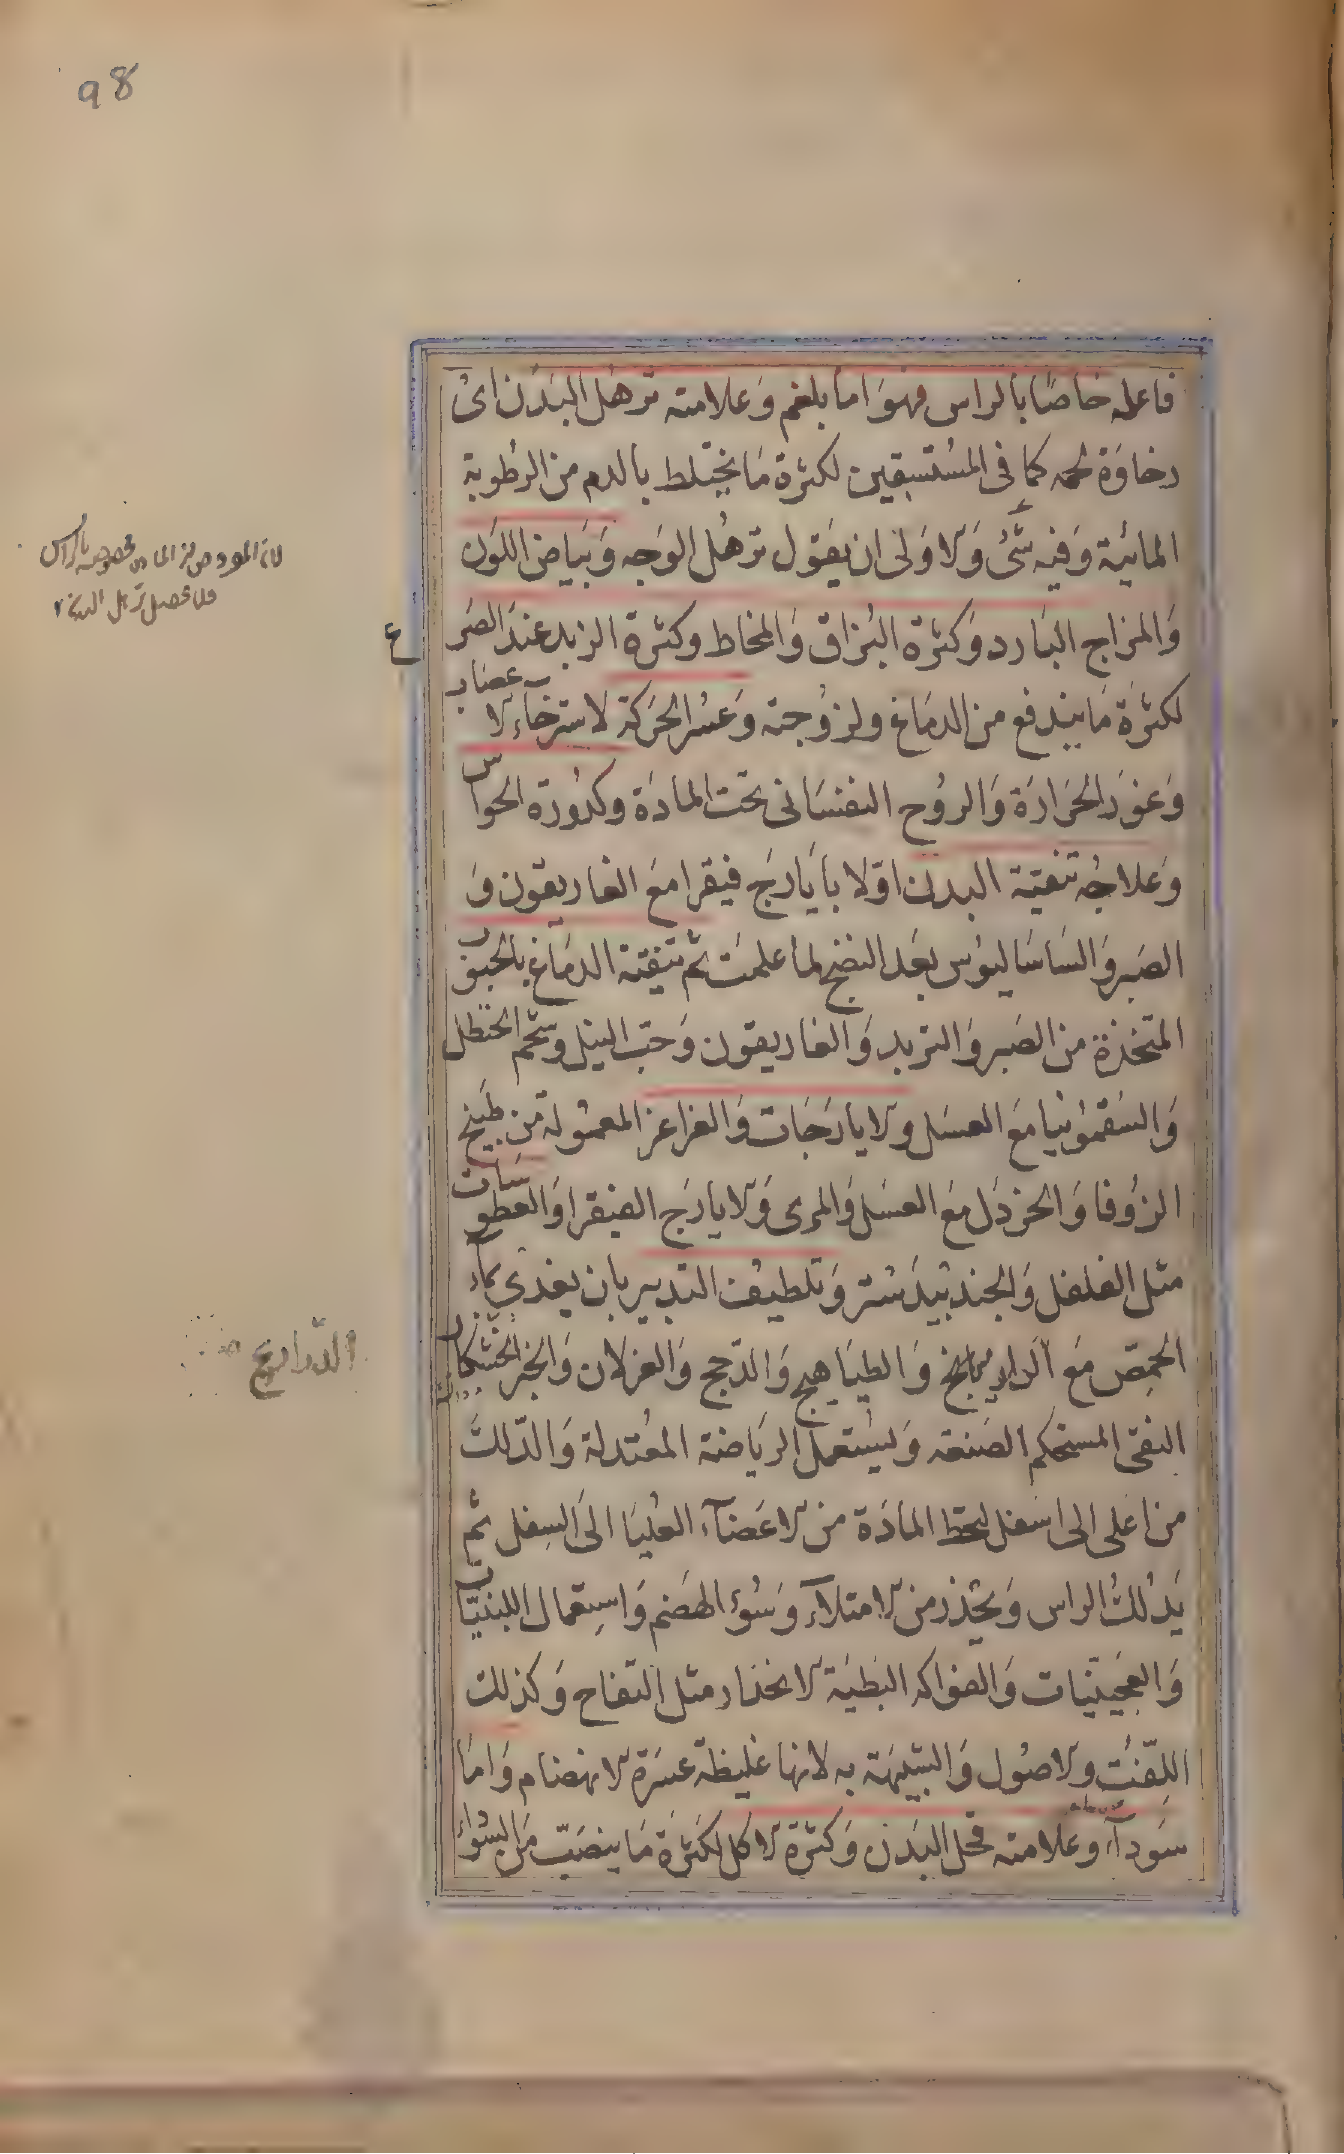 98
فاعله خاصًا بالراس فهوَ اما بلغم وَعلامته ترهل البَدَن اى
رخاوَة لحمه كما فى المسُتسقين لكثرة مَا يختلط بالدم من الرطوبة
المائية وَفيه شئ وَالاولى ان يقول ترهل الوَجه وَبَياض اللوَن
وَالمزاج البَارد وَكثرة البُزاق وَالمخاط وكثرة الزبد عندَ الصَرع
لكثرة مَا يندفع من الدمَاغ ولزوُجته وَعسُر الحرَكة لاسترخاء الاعصاب
وَغورَ الحَرَارَة وَالروُح النفسَانى تحت المادَة وكدُورَة الحواس
وَعلاجُه تنقية البدن اوّلا بايَارَج فيقرا معَ الغاريقون وَ
الصَبر وَالسَاسَاليوُس بعَد النضج لما علمت ثم تنقية الدمَاغ بالحبوب
المتخذة من الصَبر وَالتربد وَالغاريقون وَحبّ النيل وشحم الحنظل
وَالسَقمونيا معَ العسَل والايارَجَات وَالغراغر المعموُلة من طبيخ
الزوُفا وَالخردَل معَ العسَل وَالمرى وَالايارَج الفيقرا وَالعطوسَات
مثل الفلفل وَالجندبيدَستر وَتلطيف التدبير بان يغدى بماء
الحمّص معَ الدراريخ وَالطيَاهيج وَالدّجج وَالغزلان وَالخبز الخشكار
النقى المستحكم الصَنعة وَليسُتعمل الريَاضة المعُتدلة وَالدّلك
من اعَلى الى اسَفل لتحط المادَة من الاعَضآء العُليَا الىَ السِفل ثم
يَدلك الراس وَيحذر من الامتلآء وَسُوء الهضَم وَاستعمال اللبنيّات
وَالعَجينيّات وَالفواكه البَطيَة الانحدار مثل التفاح وَكذلك
اللِفت والاصُول وَالشبيهَة به لانها غليظة عسَرة الانهضام وَامَا
سَودآء وعلامته قحل البَدن وَكثرة الاكل لكثرة مَا ينصَبّ منَ السَودَاء
الدّراريج